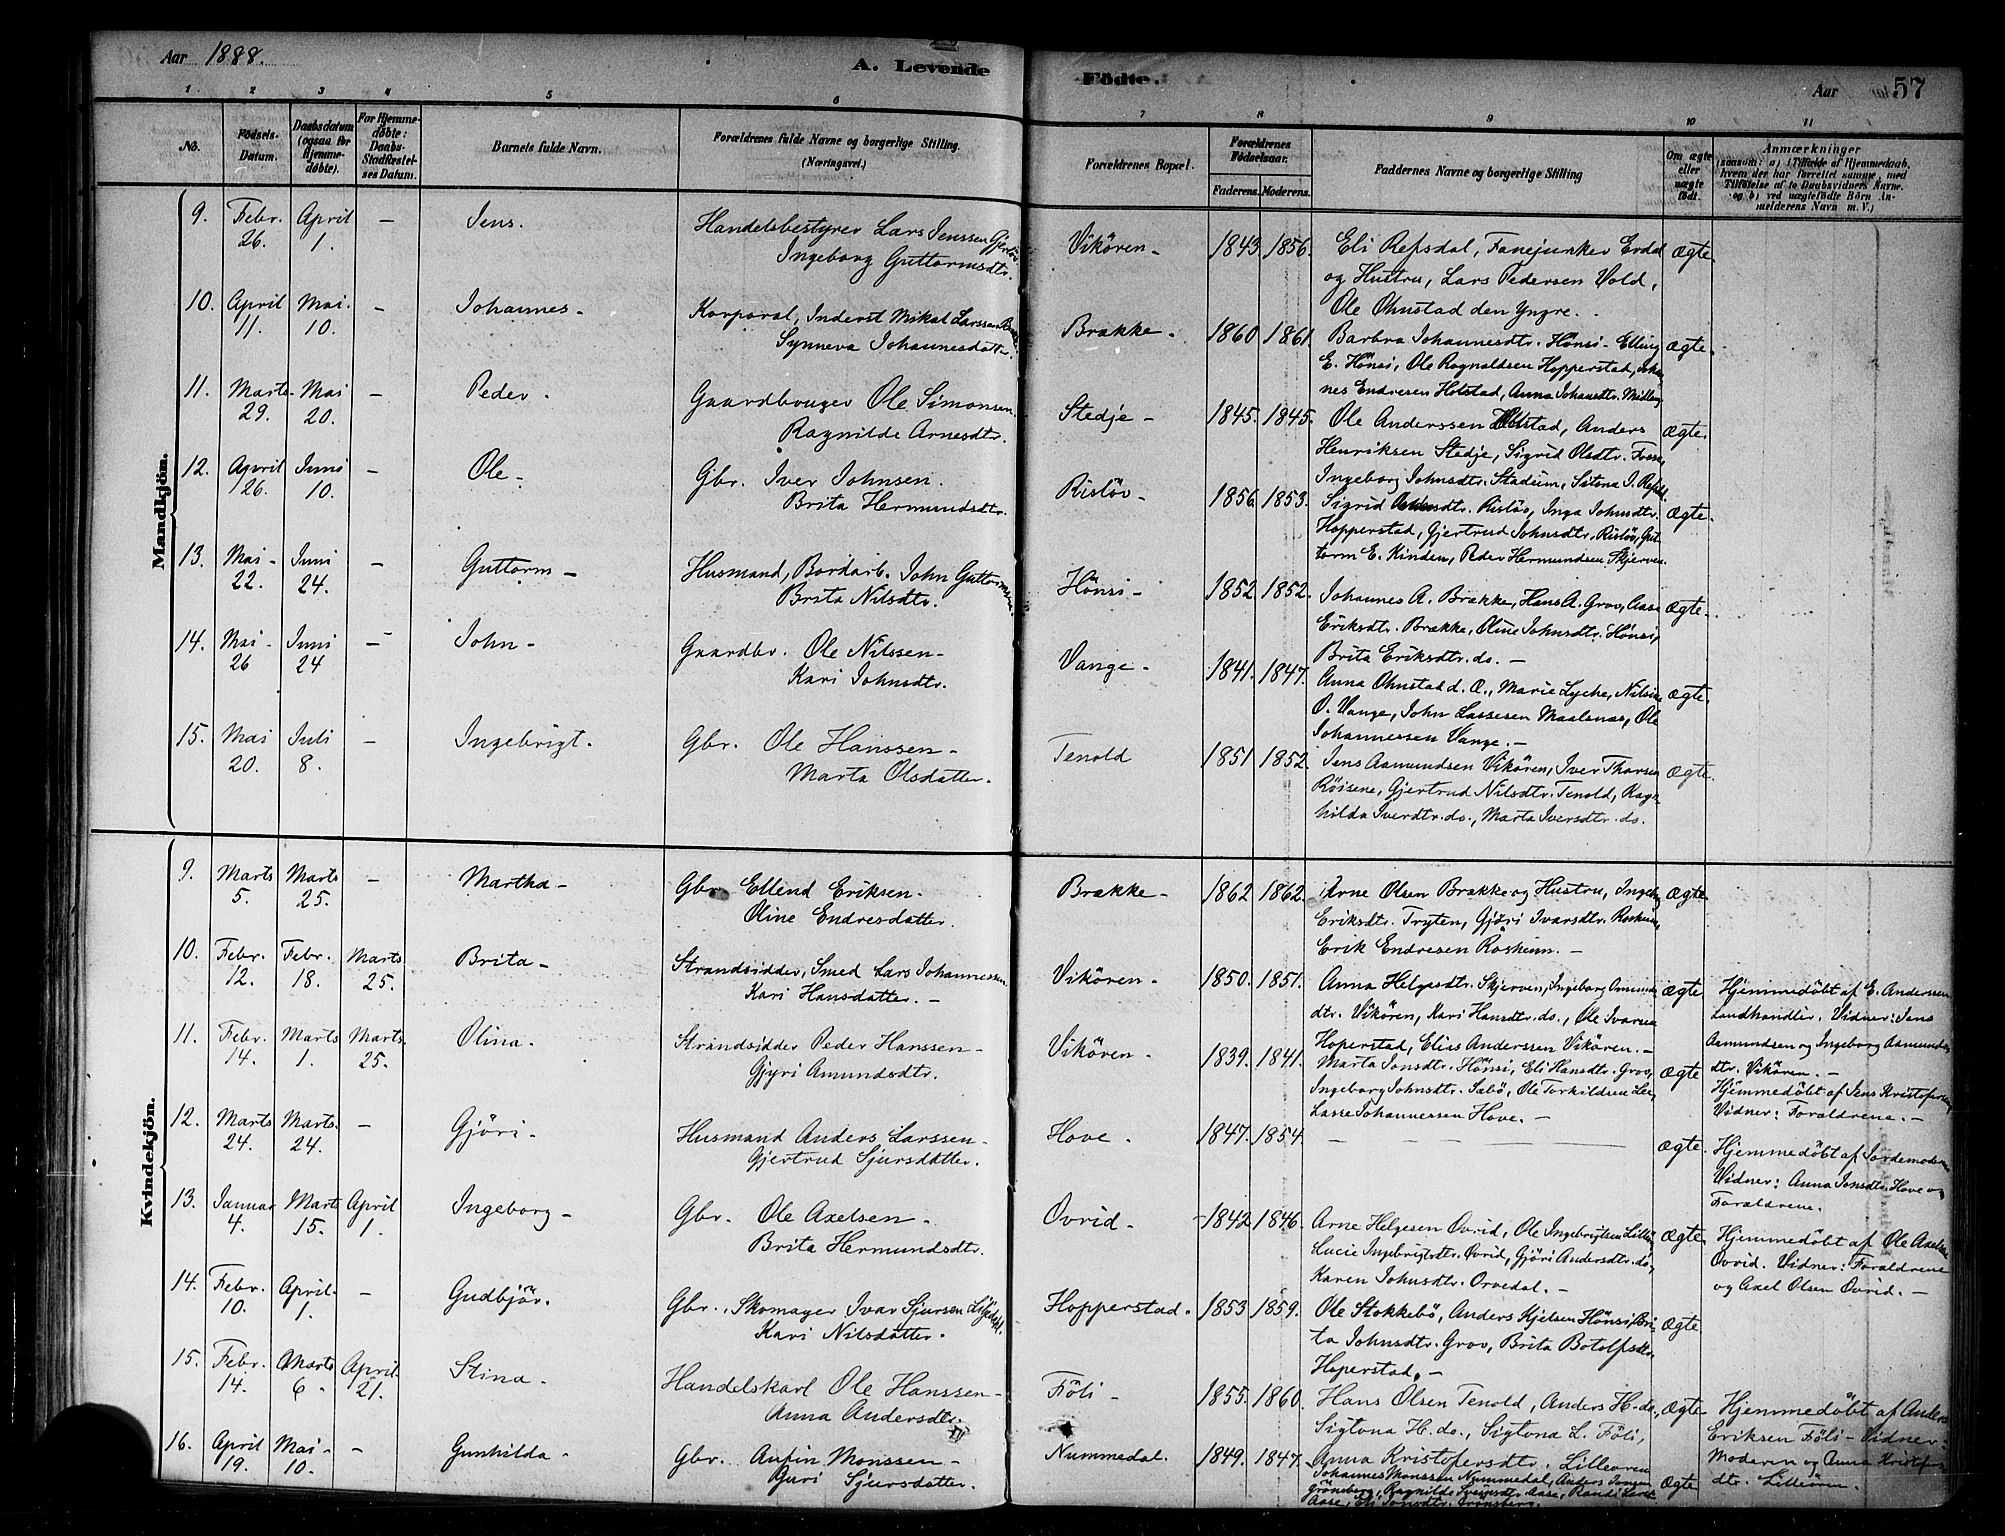 Aar 1888.
A. Levende Födte.
Aar 57
1. 2 3 4 5 6 7 8 9 10 11
No.
Födsels-Datum.
Daabsdatum (ogsaa for Hjemmedøbte).
For Hjemmedøbte: Daabs-Stadfæstelses Datum.
Barnets fulde Navn.
Forældrenes fulde Navne og borgerlige Stilling. (Næringsvei.)
Forældrenes Bopæl.
Forældrenes Födselsaar.
Faderens. Moderens.
Faddernes Navne og borgerlige Stilling
Om ægte eller uægte født.
Anmærkninger
(saasom: a) i Tilfælde af Hjemmedaab, hvem der har forrettet samme, med Tilføielse af to Daabsvidners Navne. og b) ved uægtefødte Børn Anmelderens Navn m. V.)
Mandkjön.
9. Febr. 26. April 1. – Jens. Handelsbestyrer Lars Jenssen
Ingeborg Guttormsdtr. Vikören – 1843 1856. Eli Refsdal, Fanejunker Erdal ægte.
og Hustru, Lars Pedersen Vold,
Ole Ohnstad den Yngre.
10. April 11. Mai 10. – Johannes – Korporal, Inderst Mikal Larssen
Synneva Johannesdatter. Brække. 1860 1861. Barbra Johannesdtr. Hönsi – Elling ægte.
E. Hönsi, Ole Rognaldsen Hopperstad, Johan
nes Endresen Hotstad, Anna Johansdtr.
11. Marts 29. Mai 20. – Peder. Gaardbruger Ole Simonsen.
Ragnilde Arnesdtr. Stedje – 1845. 1845. Ole Anderssen, Anders ægte.
Henriksen Stedje, Sigrid Olsdtr.
Ingeborg Johnsdtr. Stadum,
12. April 26. Juni 10. – Ole – Gbr. Iver Johnsen.
Brita Hermundsdtr. Rislöv – 1856. 1853. Sigrid Rislöv, Inga Johnsdtr. ægte.
Hopperstad, Gjertrud Johnsdtr. Rislöv, Gut
torm E. Kinden, Peder Hermundsen Skjerven.
13. Mai – 22. Juni 24. – Guttorm – Husmand, Bordarb. John Guttormsen.
Brita Nilsdtr. Hönsi – 1852. 1852. Johannes A. Brække, Hans A. Grov, Aase ægte.
Eriksdtr. Brække, Oline Johnsdtr. Hönsi,
Brita Eriksdtr. do. –
14. Mai – 26 Juni 24 – John – Gaardbr. Ole Nilssen –
Kari Johnsdtr. Vange – 1841. 1847. Anna Ohnstad d. Æ., Marie Lyche, ægte.
O. Vange, John Lassesen Maalsnas, Ole
Johannessen Vange. –
15. Mai 20. Juli 8. – Ingebrigt. Gbr. Ole Hanssen –
Marta Olsdatter. Tenold 1851 1852. Jens Aamundsen Vikören, Iver Thorsen ægte.
Röisene, Gjertrud Nilsdtr. Tenold, Ragn
hilda Iverdtr. do., Marta Iversdtr. do.
Kvindekjön.
9. Marts 5. Marts 25. – Martha – Gbr. Ellend Eriksen.
Oline Endresdatter. Brække – 1862 1862. Arne Olsen Brække og Hustru, Ingeborg ægte.
Eriksdtr. Tryten, Gjöri Ivarsdtr. Rosheim,
Erik Endresen Rosheim. –
10. Febr. 12. Febr. 18. Marts 25. Brita – Strandsidder, Smed Lars Johannessen
Kari Hansdatter. – Vikören – 1850. 1851. Anna Helgesdtr. Skjerven, Ingeborg Omunds ægte
dtr. Vikören, Kari Hansdtr. do., Ole Ivarsen
Hoperstad, Elias Anderssen Vikören. –
Hjemmedöbt af E. Anderssen
Landhandler. Vidner: Jens
Aamundsen og Ingeborg Aamunds
dtr. Vikören. –
11. Febr. 14. Marts 1. Marts 25. Olina – Strandsidder Peder Hanssen –
Gjyri Amundsdtr. Vikören – 1839. 1841. Marta Jonsdtr. Hönsi, Eli Hansdtr. Grov, ægte
Ingeborg Johnsdtr. Säbö, Ole Torkildsen Lee,
Lasse Johannessen Hove. –
Hjemmedöbt af Jens Kristofersen,
Vidner: Forældrene. –
12. Marts 24. Marts. 24. – Gjöri – Husmand Anders Larssen –
Gjertrud Sjursdatter. Hove. 1847. 1854. – – – ægte.
Hjemmedöbt af Jordemoderen
Vidner: Anna Jonsdtr. Hove og
Forældrene.
13. Januar 4. Marts 15. April 1. Ingeborg – Gbr. Ole Axelsen.
Brita Hermundsdtr. Ovrid – 1842 1846. Arne Helgesen Ovrid, Ole Ingebrigtsen ægte.
Lucie Ingebrigtsdtr. Ovrid, Gjöri Andersdtr. do,
Karen Johnsdtr. Orvedal. –
Hjemmedöbt af Ole Axelsen
Ovrid. Vidner: Forældrene
og Axel Olsen Ovrid. –
14. Febr. 10. April. 1. – Gudbjör. Gbr., Skomager Ivar Sjursen
Kari Nilsdatter. Hopperstad. 1853 1859. Ole Stokkebö, Anders Kjelsen Hönsi, Bri- ægte
ta Johnsdtr. Grov, Brita Botolfsdtr.
Hoperstad. –
15. Febr. 14. Marts 6. April 21. Stina – Handelskarl Ole Hanssen –
Anna Andersdtr. Föli – 1855. 1860. Hans Olsen Tenold, Anders H. do., ægte
Sigtona H. do., Sigtona L. Föli,
Anna Kristofersdtr. Lilleören
Hjemmedöbt af Anders
Eriksen Föli – Vidner:
Moderen og Anna Kristofers
dtr. Lilleören.
16. April 19. Mai – 10. – Gunhilda – Gbr. Anfin Monssen –
Guri Sjursdatter. Nummedal. 1849. 1847. Johannes Monssen Nummedal, Anders ægte
Grönsberg, Ragnilde Aase, Randi
Aase, Eli Jonsdtr. Grönsberg.